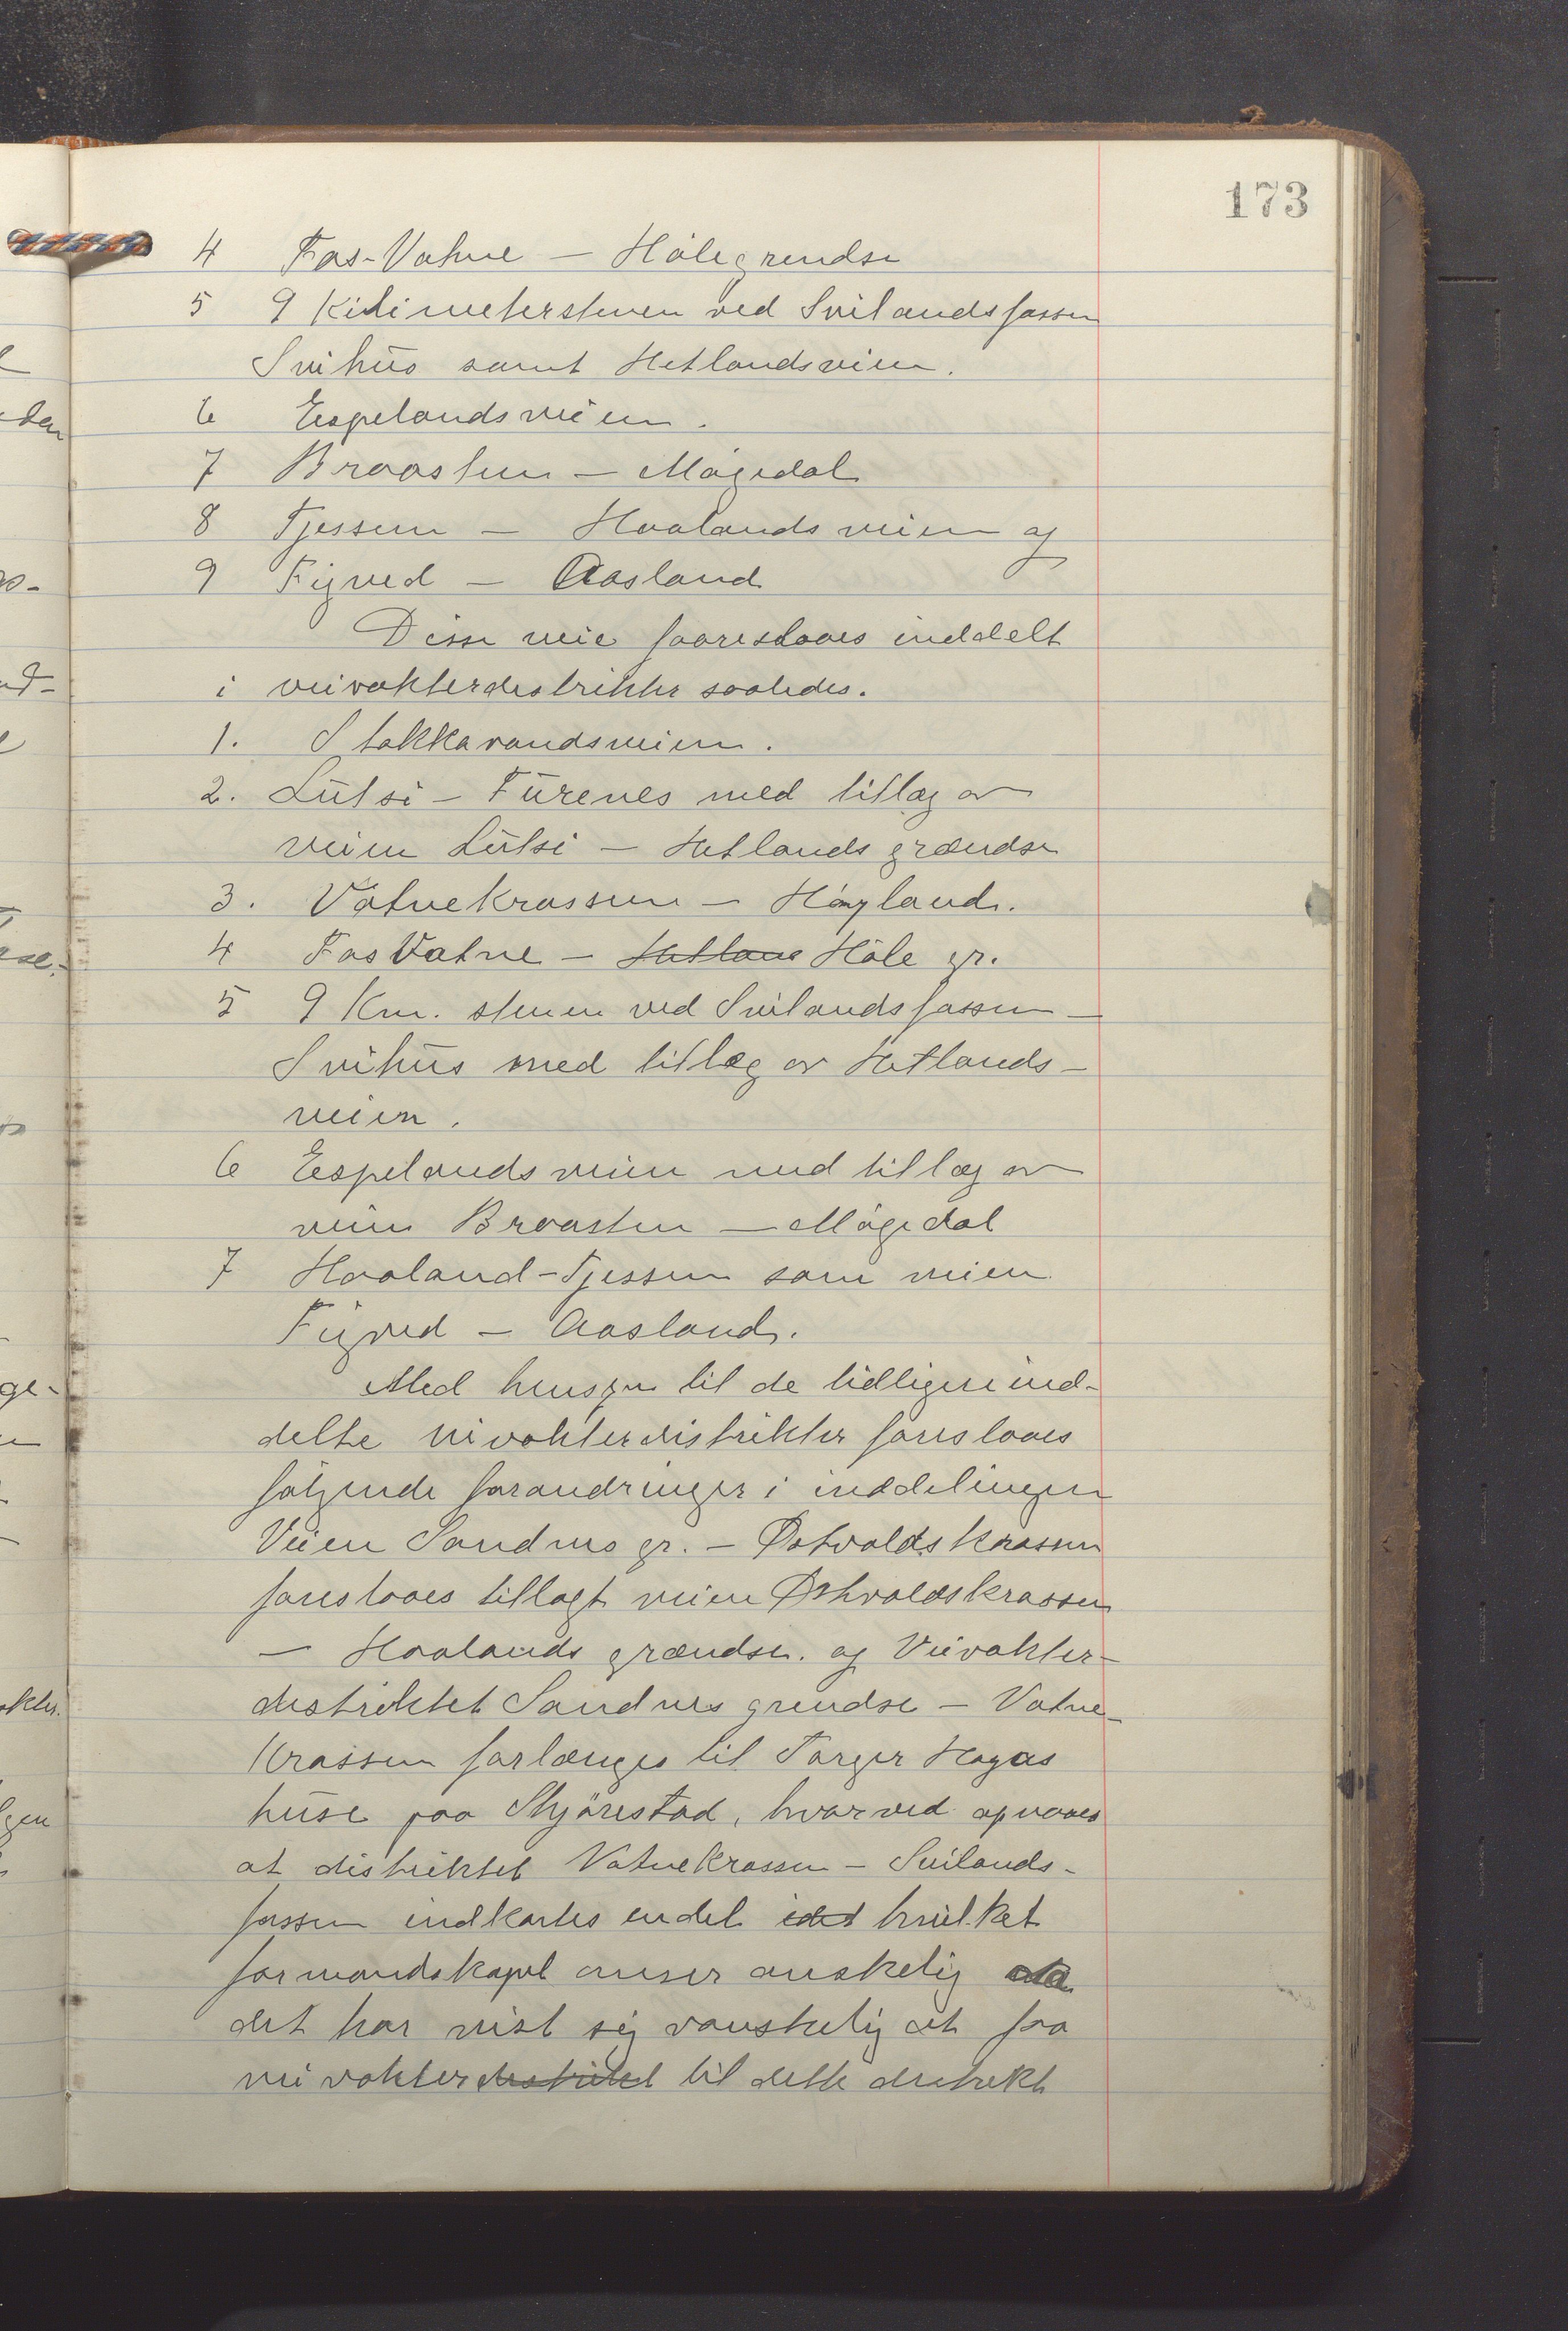 173
4 Fos-Vatne - Höle grendse
5 9 Kilimetersteinen ved Svilandsfossen
Svihus samt Hetlandsveien.
6 Espelandsveien.
7 Braasten - Mågedal
8 Tjessem - Haalandsveien og
9 Figved - Aasland
Disse veie foareslaaes inddelt
i veivokterdistrikter saaledes.
1. Stokkavandsveien.
2. Lutsi - Furenes med tillæg av
veien Lutsi - Hetlands grændse
3. Vatnekrossen - Høyland.
4 Fos Vatne - Hetlans Höle gr.
5 9 Km. stenen ved Svilandsfossen -
Svihus med tillæg av Hetlands-
veien.
6 Espelandsveien med tillæg av
veien Braasten - Mågedal
7 Haaland - Tjessem som veien
Figved - Aasland.
Med hensyn til de tidligere ind-
delte veivokterdistrikter foreslaaes
følgende forandringer i inddelingen
Veien Sandnes gr. - Østvoldskrossen
foreslaaes tillagt veien Østvoldskrossen
- Haalands grændse. og Veivokter-
distriktet Sandnes grendse - Vatne-
Krossen forlænges til Torger Hogas
huse paa Skjörestad, hvorved opnaaes
at distriktet Vatnekrossen - Svilands-
fossen indkortes endel idet hvilket
formandskapet anser ønskelig da
det har vist sig vanskelig at faa
veivokterdistriktet til dette distrikt